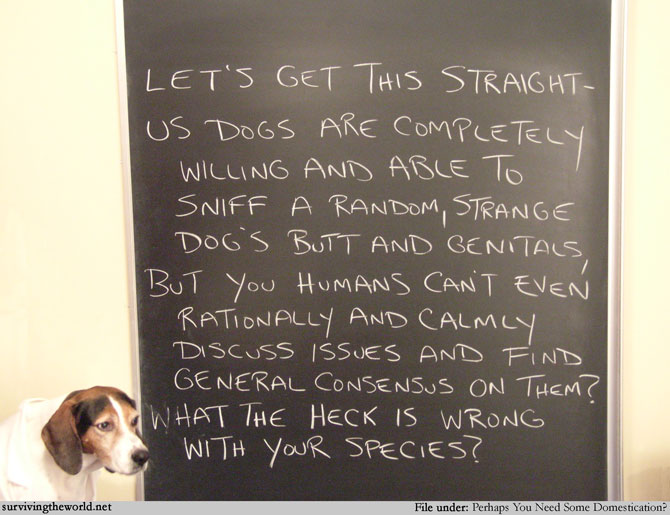 LET'S GET THIS STRAIGHT-
US DOGS ARE COMPLETELY
WILLING AND ABLE TO
SNIFF A RANDOM, STRANGE
DOG'S BUTT AND GENITALS,
BUT YOU HUMANS CAN'T EVEN
RATIONALLY AND CALMLY
DISCUSS ISSUES AND FIND
GENERAL CONSENSUS ON THEM?
WHAT THE HECK IS WRONG
WITH YOUR SPECIES?
survivingtheworld.net File under: Perhaps You Need Some Domestication?